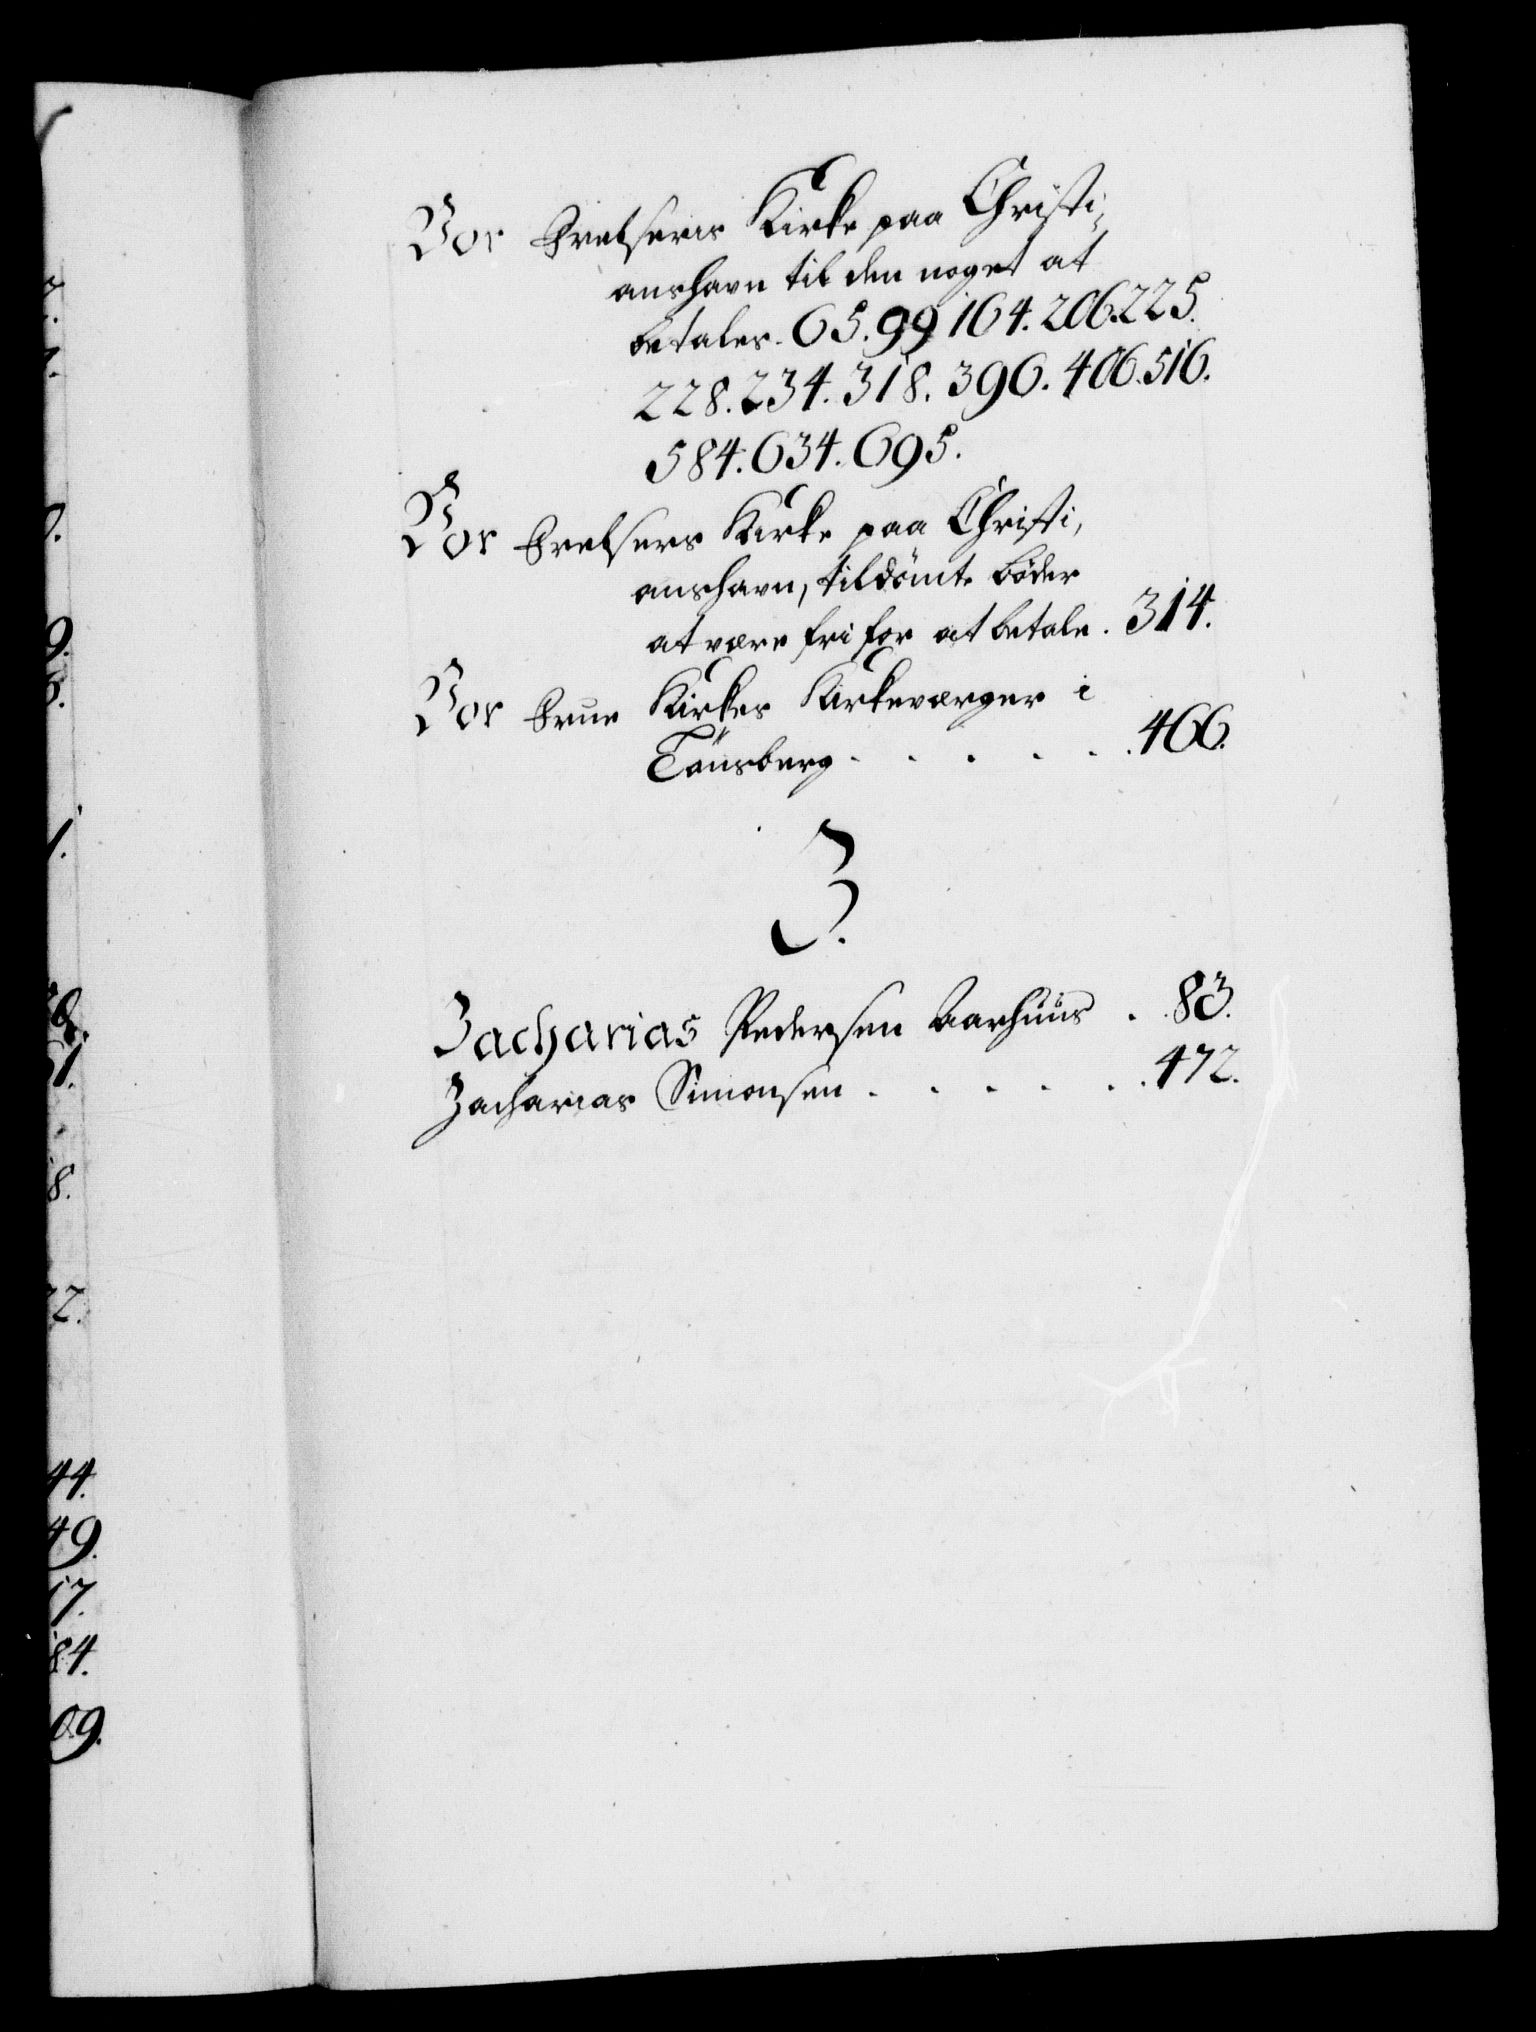 Vor Frelseris Kirke paa Christi,
anshavn til den noget at
betales. 65. 99 164. 206. 225.
228. 234. 318. 396. 406. 516.
584. 634. 695.
Vor Frelsers Kirke paa Christi,
anshavn, tildömte böder
at være fri for at betale. 314.
Vor Frue Kirkes Kirkeværger i
Tönsberg . . . . . 466.
Z.
Zacharias Pedersen Aarhuus . 83.
Zacharias Simonsen . . . . . 472.
9.
1.
8.
44.
49.
17.
84.
09.